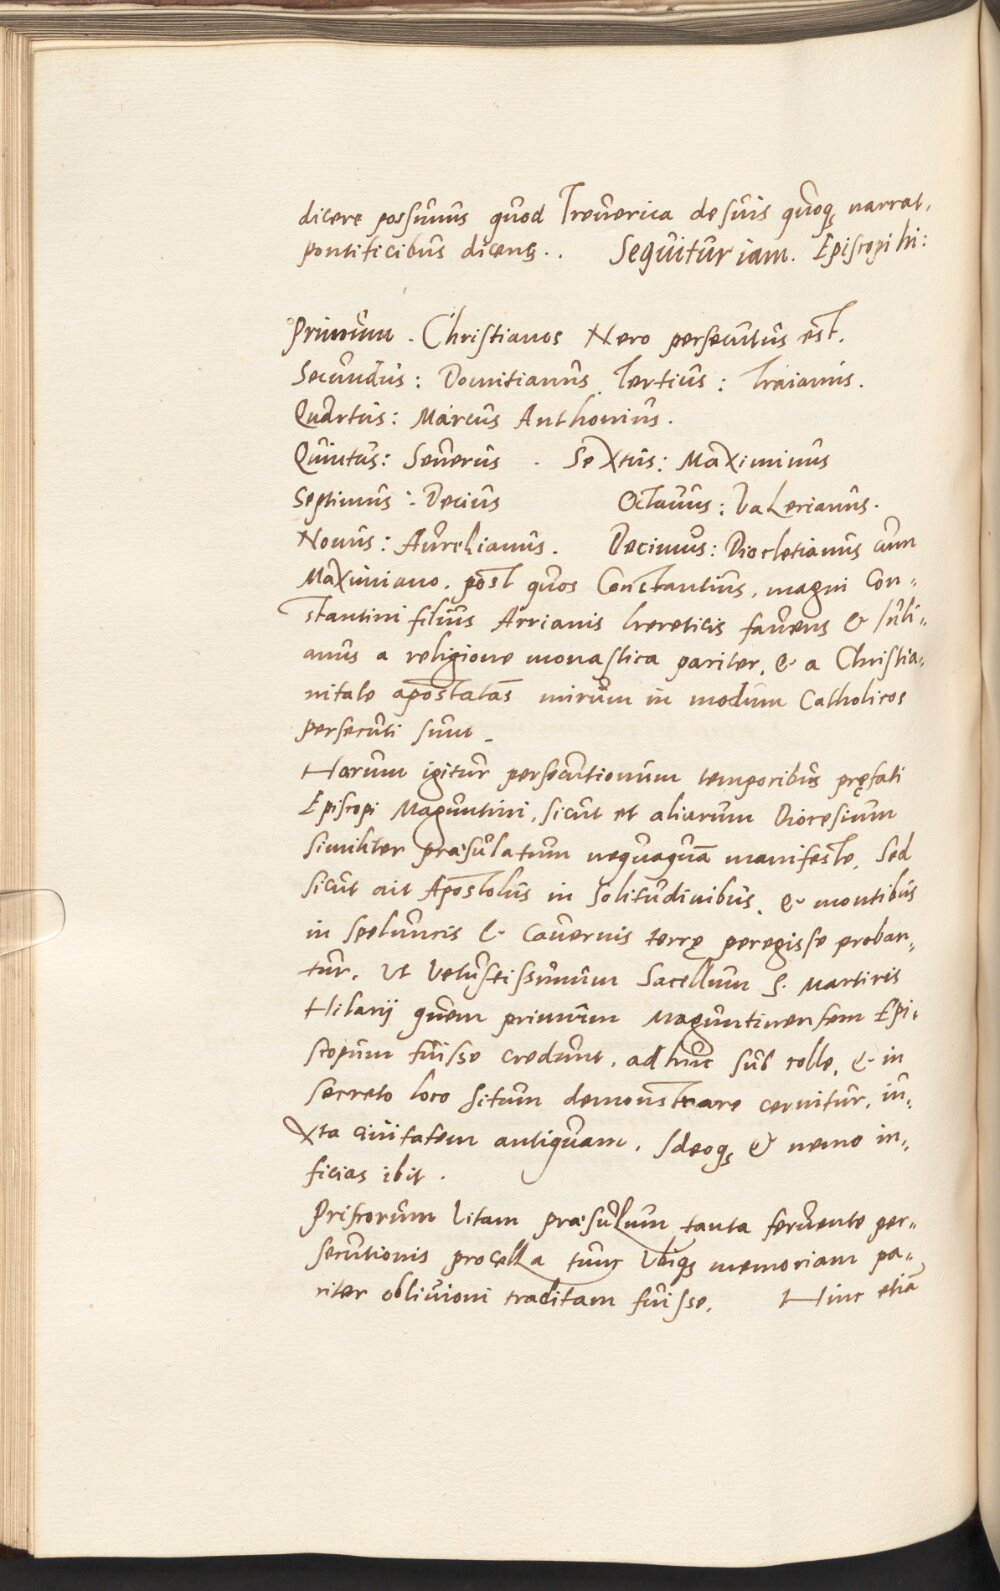 dicere possumus quod Treverica de suis quoq; narrat,
pontificibus dicens.. Sequitur iam. Episcopi hi:
Primum. Christianos Nero persecutus est.
Secundus: Domitianus. Tertius: Traianus.
Quartus: Marcus Anthonius.
Quintus: Severus . Sextus: Maximinus
Septimus: Decius Octavus: Valerianus.
Nonus: Aurelianus. Decimus: Diocletianus cum
Maximiano. post quos Constantius, magni Con-
stantini filius Arrianis hereticis favens & Iuli-
anus a religione monastica pariter, & a Christia-
nitate apostatãs mirum in modum Catholicos
persecuti sunt.
Harum igitur persecutionum temporibus pręfati
Episcopi Maguntini, sicut et aliarum Diocesium
similiter præsulatum nequaquã manifeste, Sed
sicut ait Apostolus in solitudinibus, & montibus
in speluncis & cavernis terrę peregisse proban-
tur, Ut vetustissimum Sacellum S. Martiris
Hilarij quem primum Maguntinensem Epi-
scopum fuisse credunt, ad huc sub colle, & in
secreto loco situm demonstrare cernitur, iu-
xta civitatem antiquam. Ideoq; & nemo in-
ficias ibit.
Priscorum vitam præsulum tanta fervente per-
secutionis procella tunc ubiq; memoriam pa-
riter oblivioni traditam fuisse. Hinc etiã